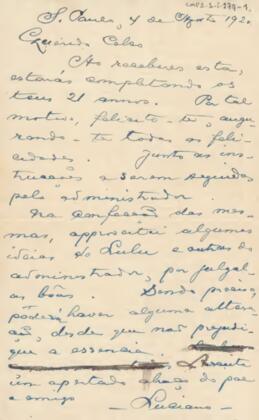 S. Paulo, 4 de Agosto 192
Querido Celso
Ao receberes esta,
estarás completando os
teus 21 annos. Por tal
motivo, felicito-te, augu-
rando-te todas as feli-
cidades. Junto as ins-
trucções a serem seguidas
pelo administrador.
Na confecção das mes-
mas, approveitei algumas
ideias do Lulu e outras do
administrador, por julgal-
as bôas. Sendo preciso,
poderá haver alguma altera-
ção, desde que não prejudi-
que a essencia
um apertado abraço do pae
e amigo
Luciano